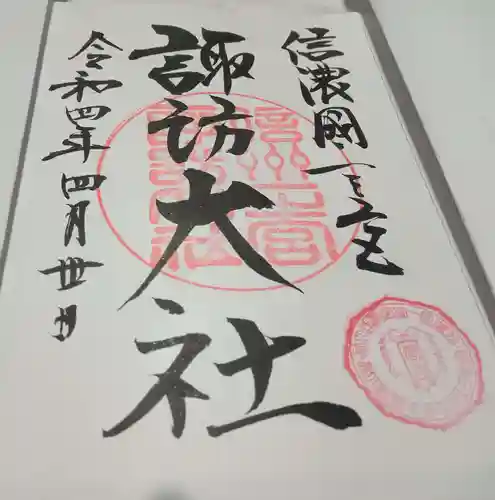 信濃國一之宮
諏訪大社
令和四年四月卅日